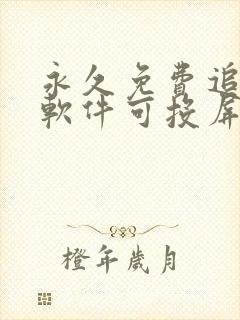 永久免費追
軟件可投屏
橙年歲月